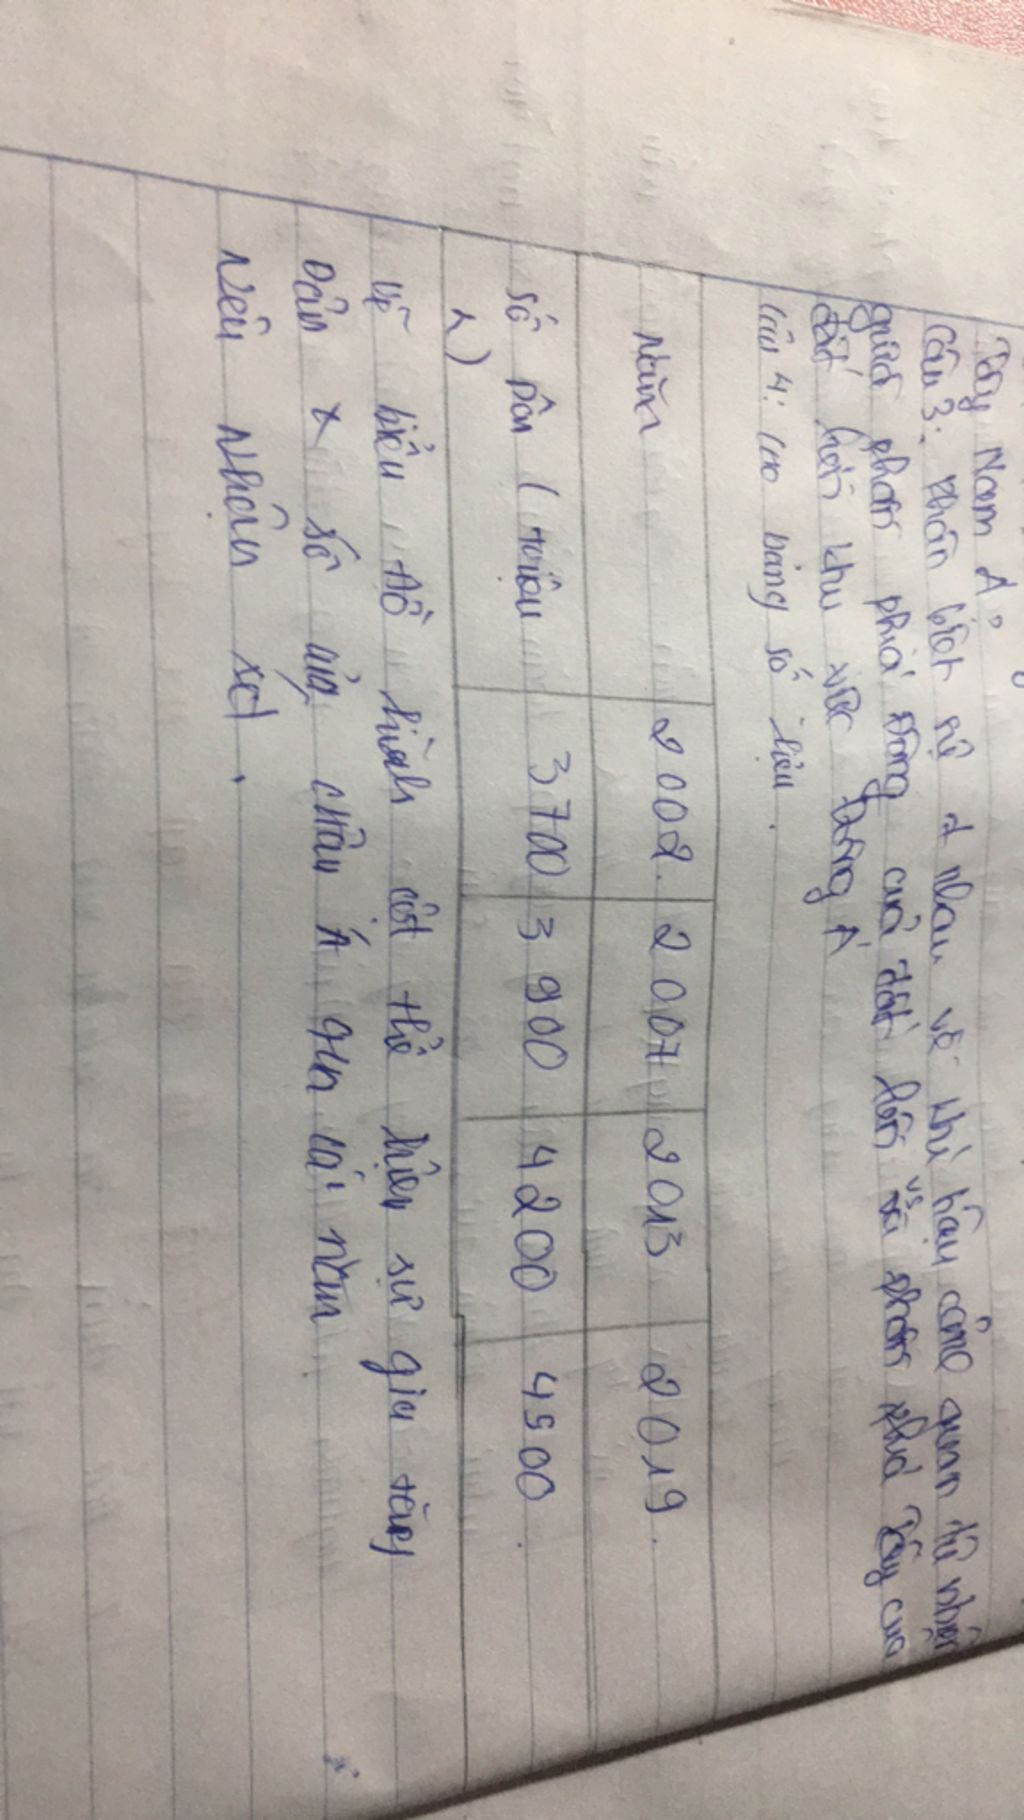 Tây Nam Á
Câu 3: phân biệt sự # nhau về khí hậu cảnh quan tự nhiên
giữa phần phía Đông của đất liền vs phần phía Tây của
đất liền khu vực Đông Á
Câu 4: Cho bảng số liệu.
Năm 2002. 2007 2013 2019.
Số Dân (triệu 3700 3900 4200 4500.
Vẽ biểu đồ hình cột thể hiện sự gia tăng
Dân số của châu Á qua các năm
Nêu Nhận xét.